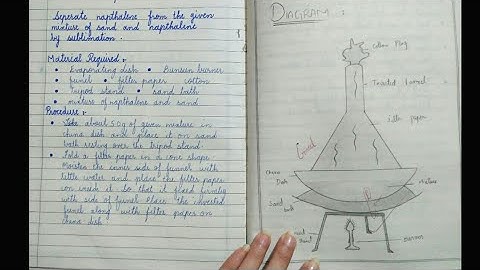 Seperate napthalene from the given
mixture of sand and napthalene
by sublimation.
Material Required:-
• Evaporating dish • Bunsen burner
• funnel • filter paper cotton
• Tripod stand • sand bath
• mixture of napthalene and sand
Procedure:-
• Take about 50g of given mixture in
china dish and place it on sand
bath resting over the tripod stand.
• Fold a filter paper in a cone shape
Moisten the inner side of funnel with
little water and place the filter paper
con inside it so that it fixed firmly
with side of funnel Place the inverted
funnel along with filter paper on
china dish
DIAGRAM:
Cotton Plug
Inverted Funnel
filter paper
China
Dish
Mixture
Sand
bath
stand
Burner